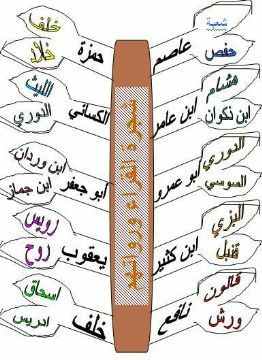 شجرة القراء ورواتهم
عاصم
شعبة
حفص
ابن عامر
هشام
ابن ذكوان
أبو عمرو
الدوري
السوسي
ابن كثير
البزي
قنبل
نافع
قالون
ورش
حمزة
خلف
خلاد
الكسائي
الليث
الدوري
أبو جعفر
ابن وردان
ابن جماز
يعقوب
رويس
روح
خلف
اسحاق
ادريس